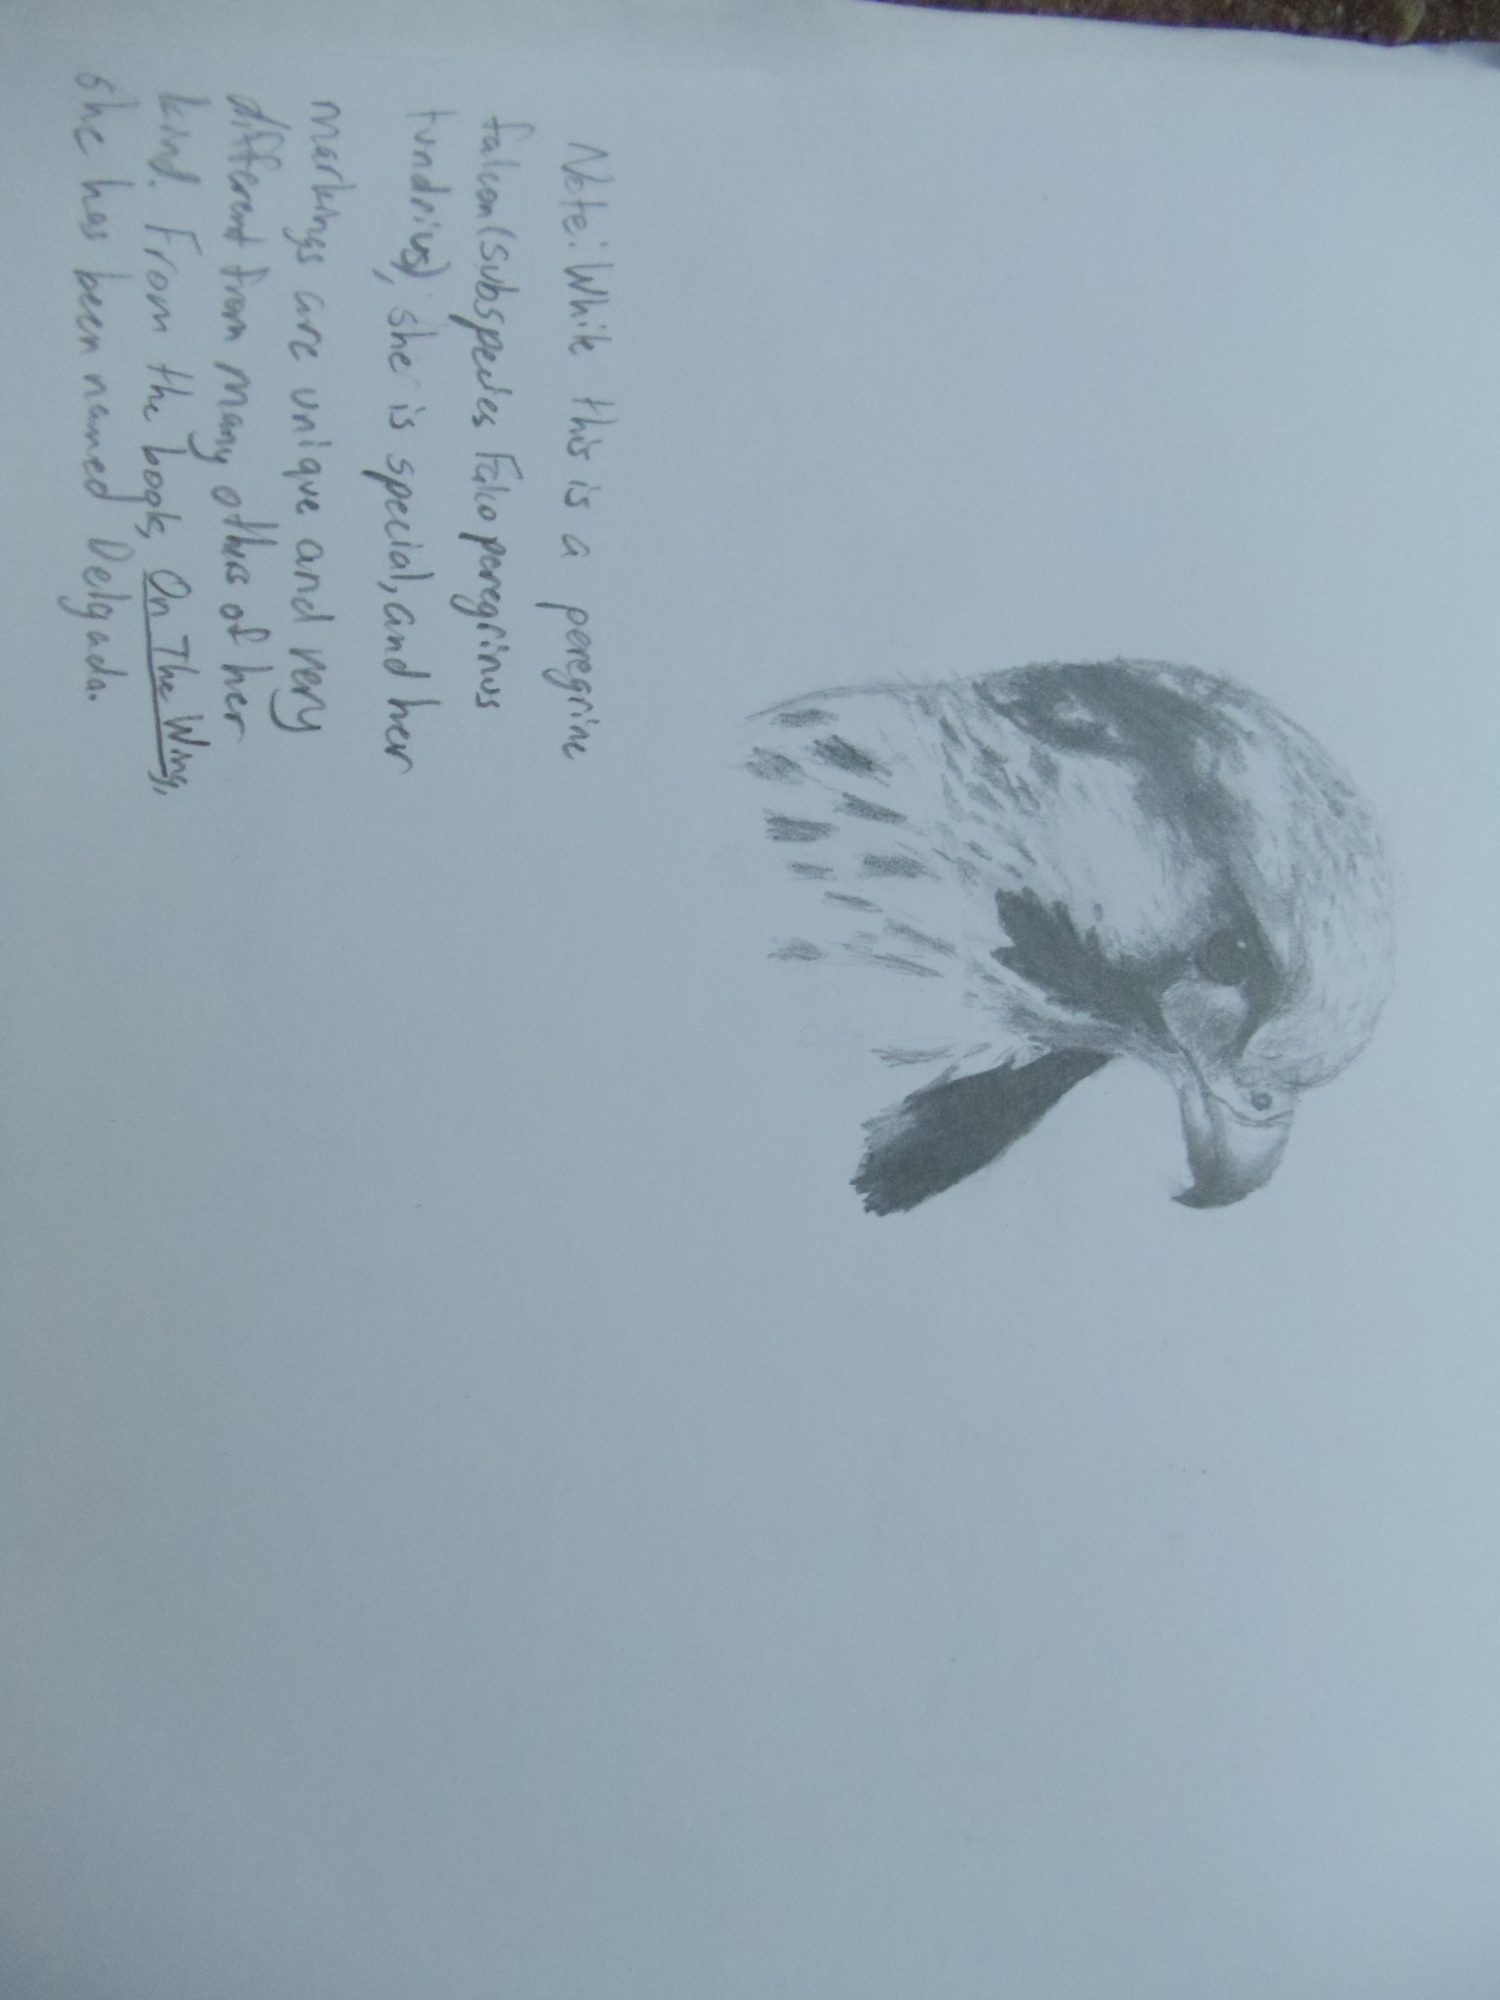 Note: While this is a peregrine
falcon (subspecies Falco peregrinus
tundrius), she is special, and her
markings are unique and very
different from many others of her
kind. From the book, On The Wing,
she has been named Delgada.